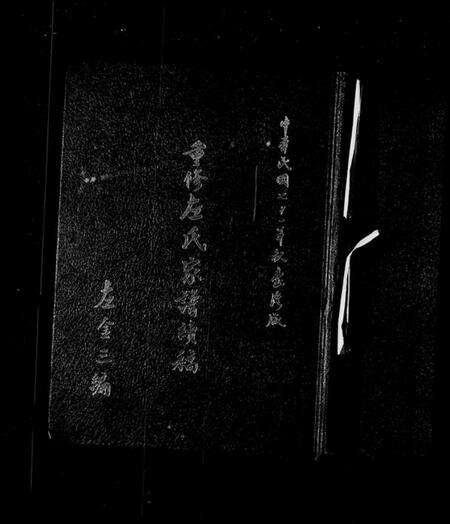 中華民國七十一年秋臺灣版
重修左氏家譜續稿
左金三編